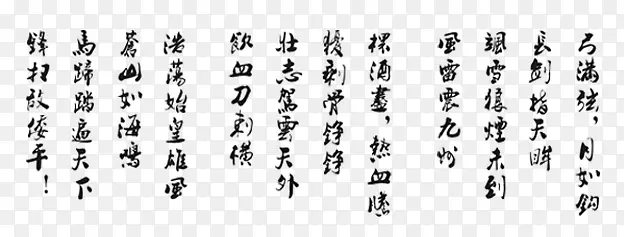 弓满弦,月如鈎
長劍指天眸
颯雪狼煙未到
風雷震九州
裸酒盡,熱血騰
殘剩骨錚錚
壯志駕雲天外
飲血刀刺橫
浩蕩始皇雄風
蒼山如海鳴
馬蹄踏遍天下
鋒掃敵倭平!